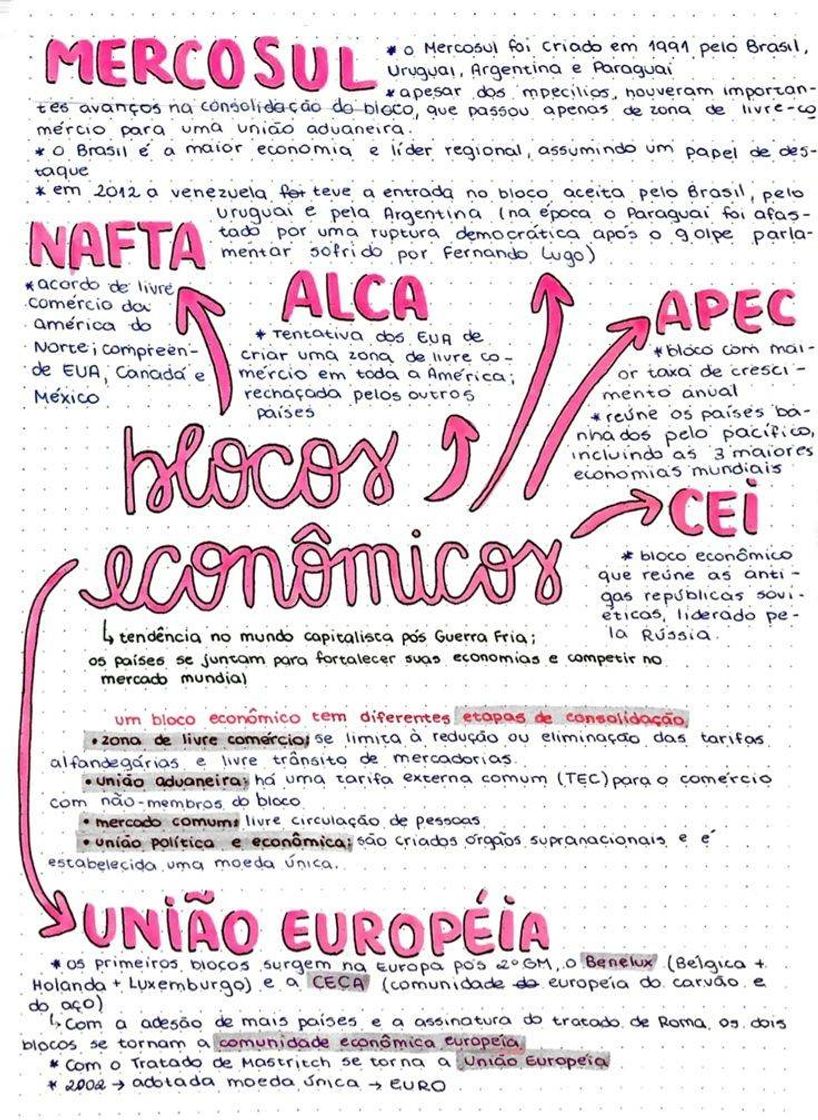 MERCOSUL
* o Mercosul foi criado em 1991 pelo Brasil,
Uruguai, Argentina e Paraguai
* apesar dos mpecílios, houveram importan-
tes avanços na consolidação do bloco, que passou apenas de zona de livre-co
mércio para uma união aduaneira.
* o Brasil é a maior economia e líder regional, assumindo um papel de des-
taque
* em 2012 a venezuela foi teve a entrada no bloco aceita pelo Brasil, pelo
uruguai e pela Argentina (na época o Paraguai foi afas-
tado por uma ruptura democrática após o golpe parla-
mentar sofrido por Fernando Lugo)
NAFTA
* acordo de livre
comércio da
américa do
Norte; compreen-
de EUA, Canadá e
México
ALCA
* Tentativa dos EUA de
criar uma zona de livre co-
mércio em toda a América;
rechaçada pelos outros
países
APEC
* bloco com mai-
or taxa de cresci-
mento anual
* reúne os países ba-
nhados pelo pacífico,
incluindo as 3 maiores
economias mundiais
blocos
econômicos
CEI
* bloco econômico
que reúne as anti-
gas repúblicas sovi-
éticas, liderado pe-
la Rússia.
↳ tendência no mundo capitalista pós Guerra Fria;
os países se juntam para fortalecer suas economias e competir no
mercado mundial
um bloco econômico tem diferentes etapas de consolidação
• zona de livre comércio: se limita à redução ou eliminação das tarifas
alfandegárias e livre trânsito de mercadorias.
• união aduaneira: há uma tarifa externa comum (TEC) para o comércio
com não-membros do bloco
• mercado comum: livre circulação de pessoas
• união política e econômica: são criados órgãos supranacionais e é
estabelecida uma moeda única.
UNIÃO EUROPÉIA
* os primeiros blocos surgem na Europa pós 2ª GM, o Benelux (Bélgica +
Holanda + Luxemburgo) e a CECA (comunidade do europeia do carvão e
do aço)
↳ Com a adesão de mais países e a assinatura do tratado de Roma, os dois
blocos se tornam a comunidade econômica europeia
* Com o Tratado de Mastritch se torna a União Europeia
* 2002 → adotada moeda única → EURO